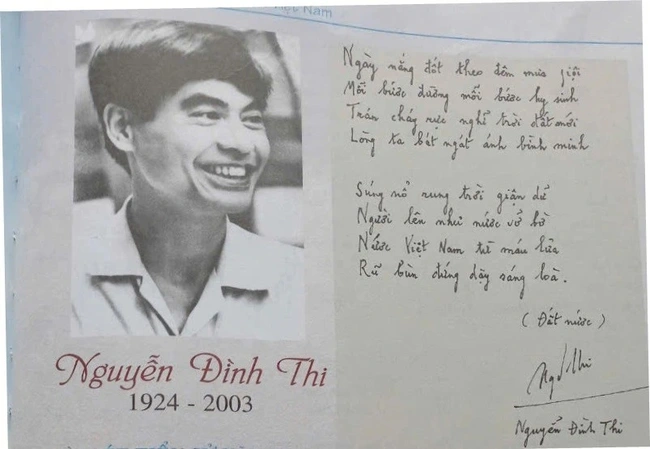 Nam
Nguyễn Đình Thi
1924 - 2003
Ngày nắng đốt theo đêm mưa giội
Mỗi bước đường mỗi bước hy sinh
Trán cháy rực nghĩ trời đất mới
Lòng ta bát ngát ánh bình minh
Súng nổ rung trời giận dữ
Người lên như nước vỡ bờ
Nước Việt Nam từ máu lửa
Rũ bùn đứng dậy sáng loà.
(Đất nước)
Nguyễn Đình Thi